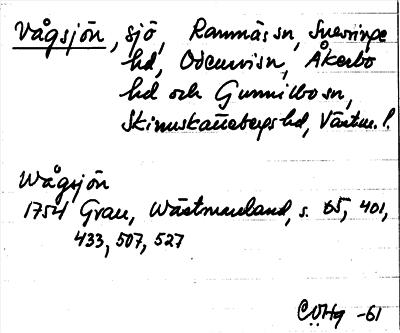 Vågsjön, sjö, Ramnäs sn, Snevringe
hd, Odensvi sn, Åkerbo
hd och Gunnilbo sn,
Skinnskattebergs hd, Västm. l.
Wågsjön
1754 Grau, Wästmanland, s. 65, 401,
433, 507, 527
-61